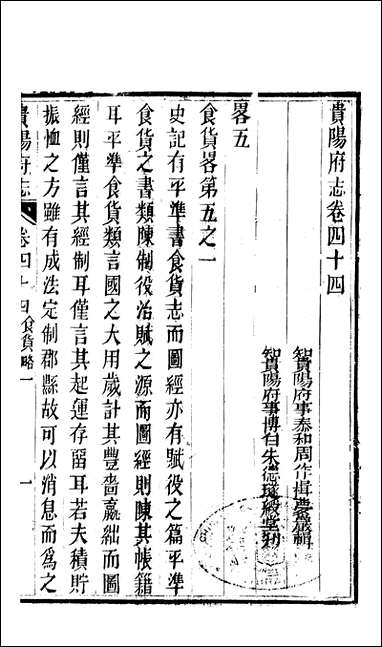 貴陽府志卷四十四
知貴陽府事泰和周作楫農蕞輯
知貴陽府事博白朱德璲殿堂刊
畧五
食貨畧第五之一
史記有平準書食貨志而圖經亦有賦役之篇平準
食貨之書類陳制役治賦之源而圖經則陳其帳籍
耳平準食貨類言國之大用歲計其豐嗇贏絀而圖
經則僅言其經制耳僅言其起運存留耳若夫積貯
振恤之方雖有成法定制郡縣故可以消息而為之
貴陽府志 卷四十四 食貨略一 一